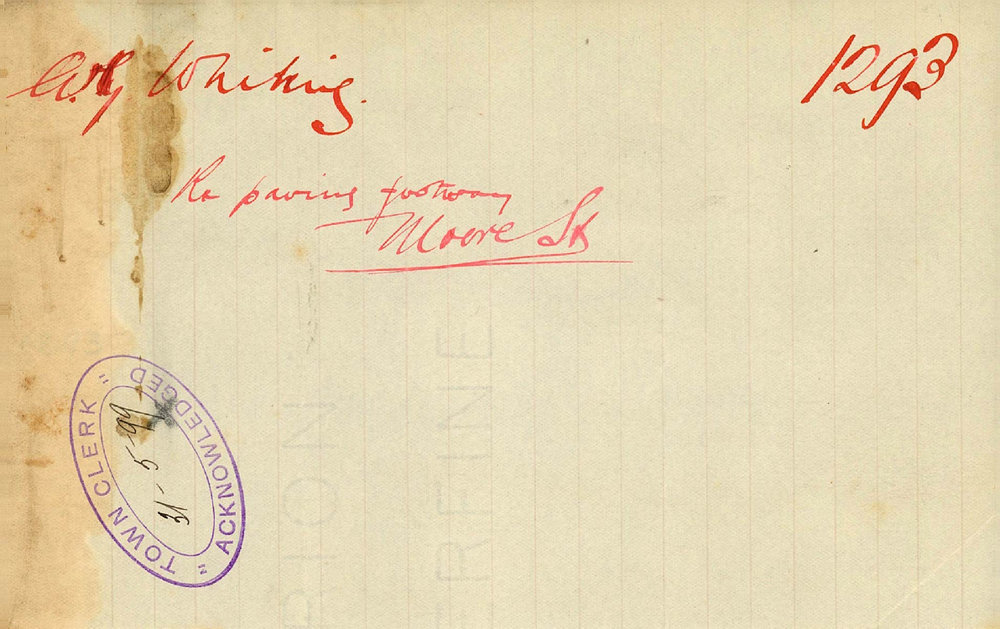 Whiting.
1293
Re paving footway
Moore St
TOWN CLERK
" ACKNOWLEDGED "
31-5-99